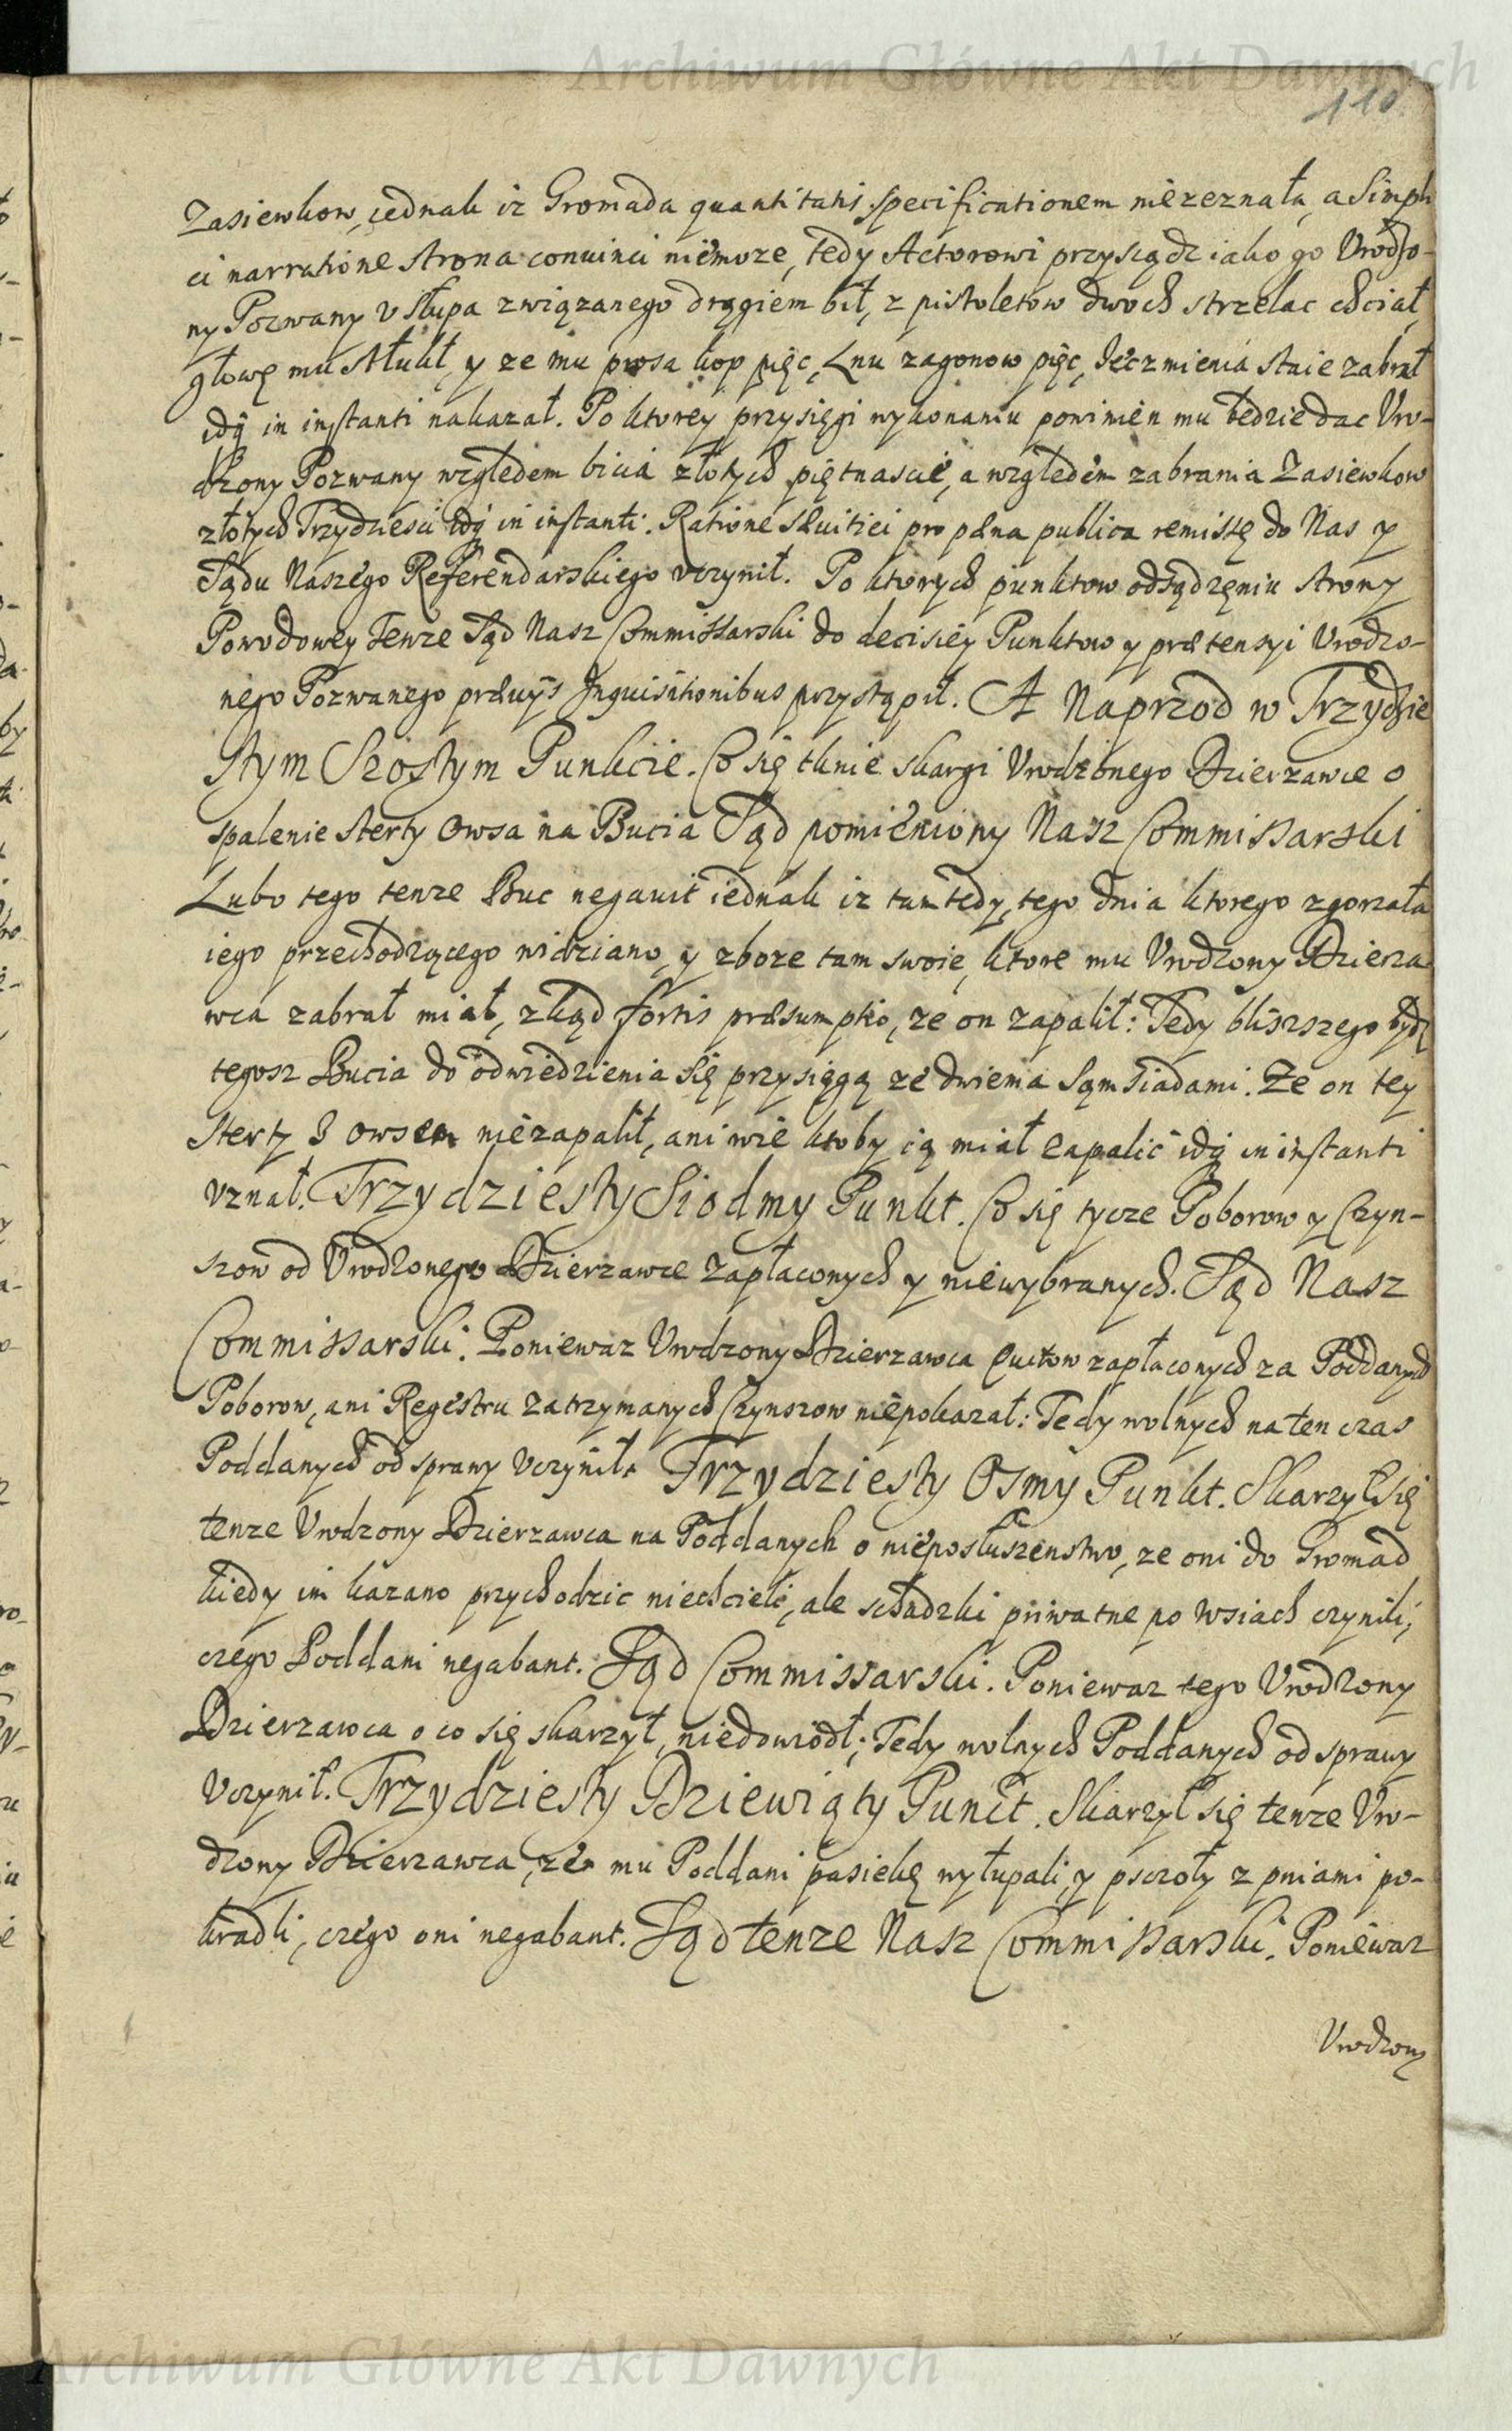 Archiwum Główne Akt Dawnych
110
Zasiewkow, iednak iz Gromada quantitatis specificationem niezeznała, a Simpli
ci narratione strona conuinci niemoze, tedy Actorowi przysiądz iako go Vrodzo-
ny Pozwany v słupa związanego drągiem bił, z pistoletow dwoch strzelac chciał,
głowę mu stłukł, y ze mu prosa kop pięc, Lnu zagonow pięc, Jęczmienia staie zabrał
idq in instanti nakazał. Po ktorey przysięgi wykonaniu powinien mu będzie dac Vro-
dzony Pozwany względem bicia złotych piętnascie, a względem zabrania Zasiewkow
złotych Trzydziesci idq in instanti. Ratione sæuitiei pro pæna publica remissę do Nas y
Sądu Naszego Referendarskiego vczynił. Po ktorych punktow odsądzęniu strony
Powodowey Tenze Sąd Nasz Commissarski do decisiey Punktow y prætensyi Vrodzo-
nego Pozwanego præuijs Inquisitionibus przystąpił. A Naprzod w Trzydzie
stym Szostym Punkcie. Co się tknie skargi Vrodzonego Dzierzawce o
spalenie sterty Owsa na Bucia Sąd pomieniony Nasz Commissarski
Lubo tego tenze Buc negauit iednak iz tamtedy, tego dnia ktorego zgorzała
iego przechodzącego widziano, y zboze tam swoie, ktore mu Vrodzony Dzierza
wca zabrał miał, zkąd fortis præsumptio, ze on zapalił: Tedy bliszszego bydz
tegosz Bucia do odwiedzienia się przysięgą ze dwiema Sąmsiadami. Ze on tey
Sterty z owsem niezapalił, ani wie ktoby ią miał zapalić idq in instanti
vznał. Trzydziesty Siodmy Punkt. Co się tycze Poborow y Czyn-
szow od Vrodzonego Dzierzawce zapłaconych y niewybranych. Sąd Nasz
Commissarski. Poniewaz Vrodzony Dzierzawca Quitow zapłaconych za Poddanych
Poborow, ani Regestru zatrzymanych Czynszow niepokazał: Tedy wolnych na ten czas
Poddanych od sprawy vczynił. Trzydziesty Osmy Punkt. Skarzył się
tenze Vrodzony Dzierzawca na Poddanych o nieposłuszenstwo, ze oni do Gromad
kiedy im kazano przychodzic niechcieli, ale schadzki priwatne po wsiach czynili,
czego Poddani negabant. Sąd Commissarski. Poniewaz tego Vrodzony
Dzierzawca o co się skarzył, niedowiodł; Tedy wolnych Poddanych od sprawy
Vczynił. Trzydziesty Dziewiąty Punct. Skarzył się tenze Vro-
dzony Dzierzawca, ze mu Poddani pasiekę wyłupali, y pszczoły z pniami po-
kradli, czego oni negabant. Sąd tenze Nasz Commissarski. Poniewaz
Vrodzony
Archiwum Główne Akt Dawnych